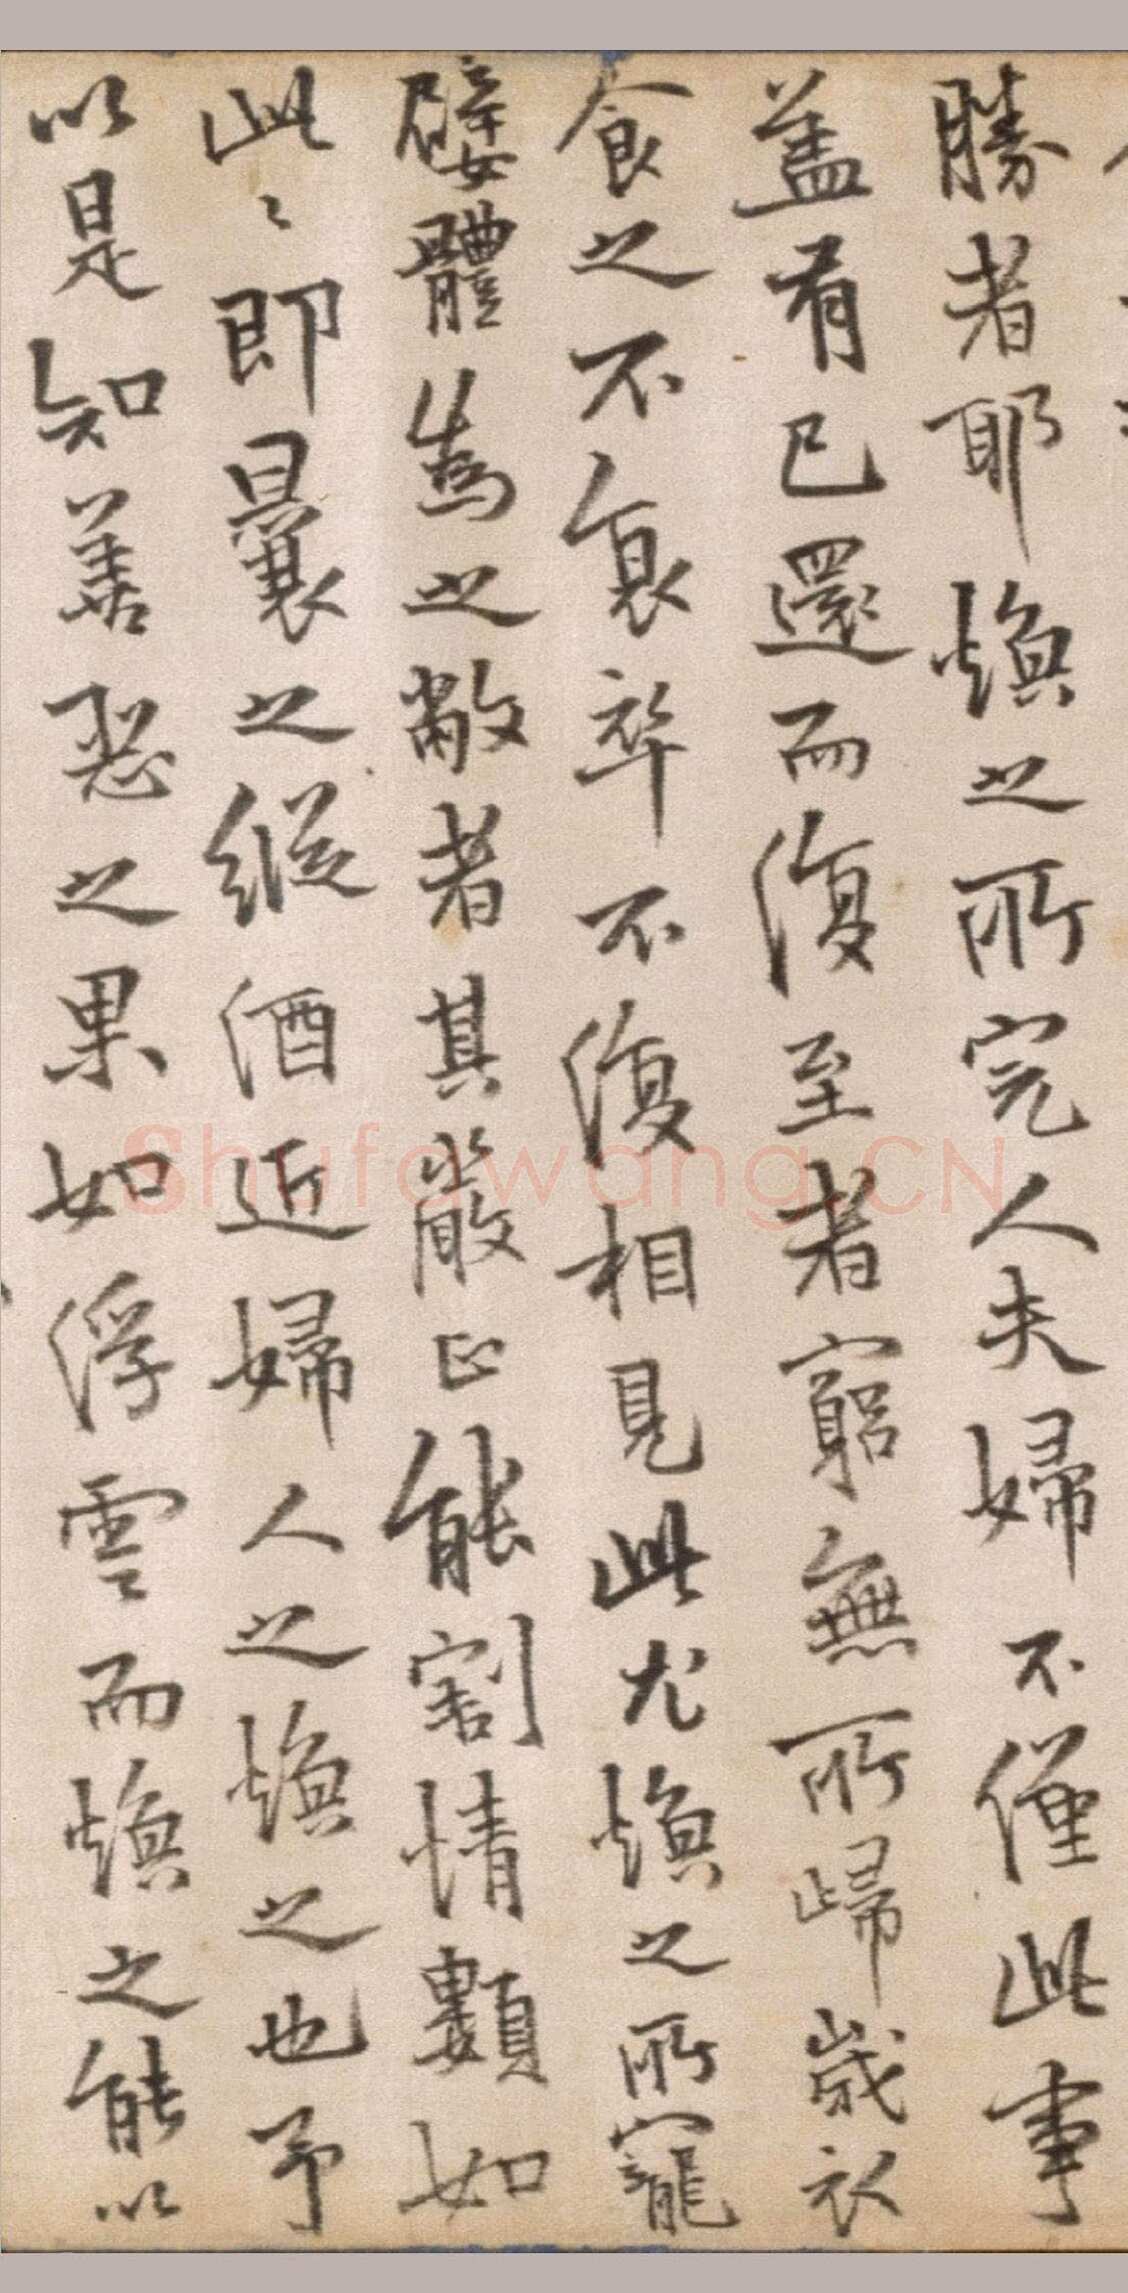 勝者耶煥之所完人夫婦不僅此事
蓋有已還而復至者窮無所歸歲衣
食之不衰卒不復相見此尤煥之所寵
嬖體為之敝者其嚴正能割情類如
此〻即曩之縱酒近婦人之煥之也予
以是知善惡之果如浮雲而煥之能以
Shufawang.CN